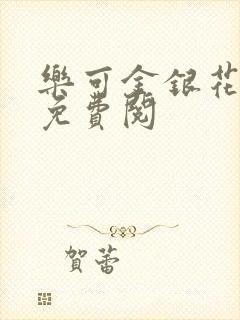 樂可金銀花
免費閱
賀蕾